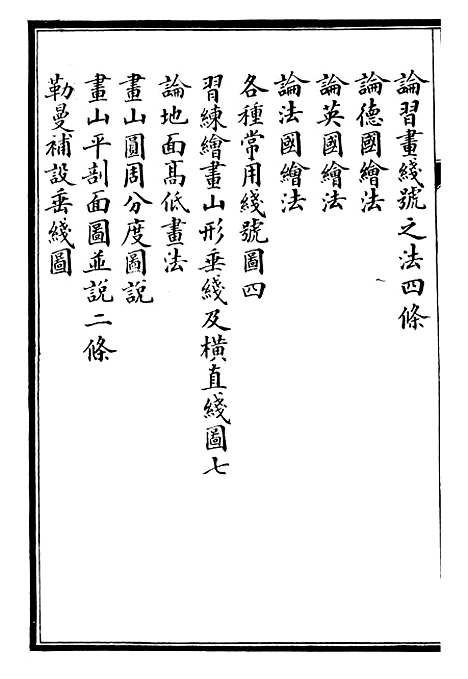 論習畫綫號之法四條
論德國繪法
論英國繪法
論法國繪法
各種常用綫號圖四
習練繪畫山形垂綫及橫直綫圖七
論地面髙低畫法
畫山圓周分度圖說
畫山平剖面圖並說二條
勒曼補設垂綫圖